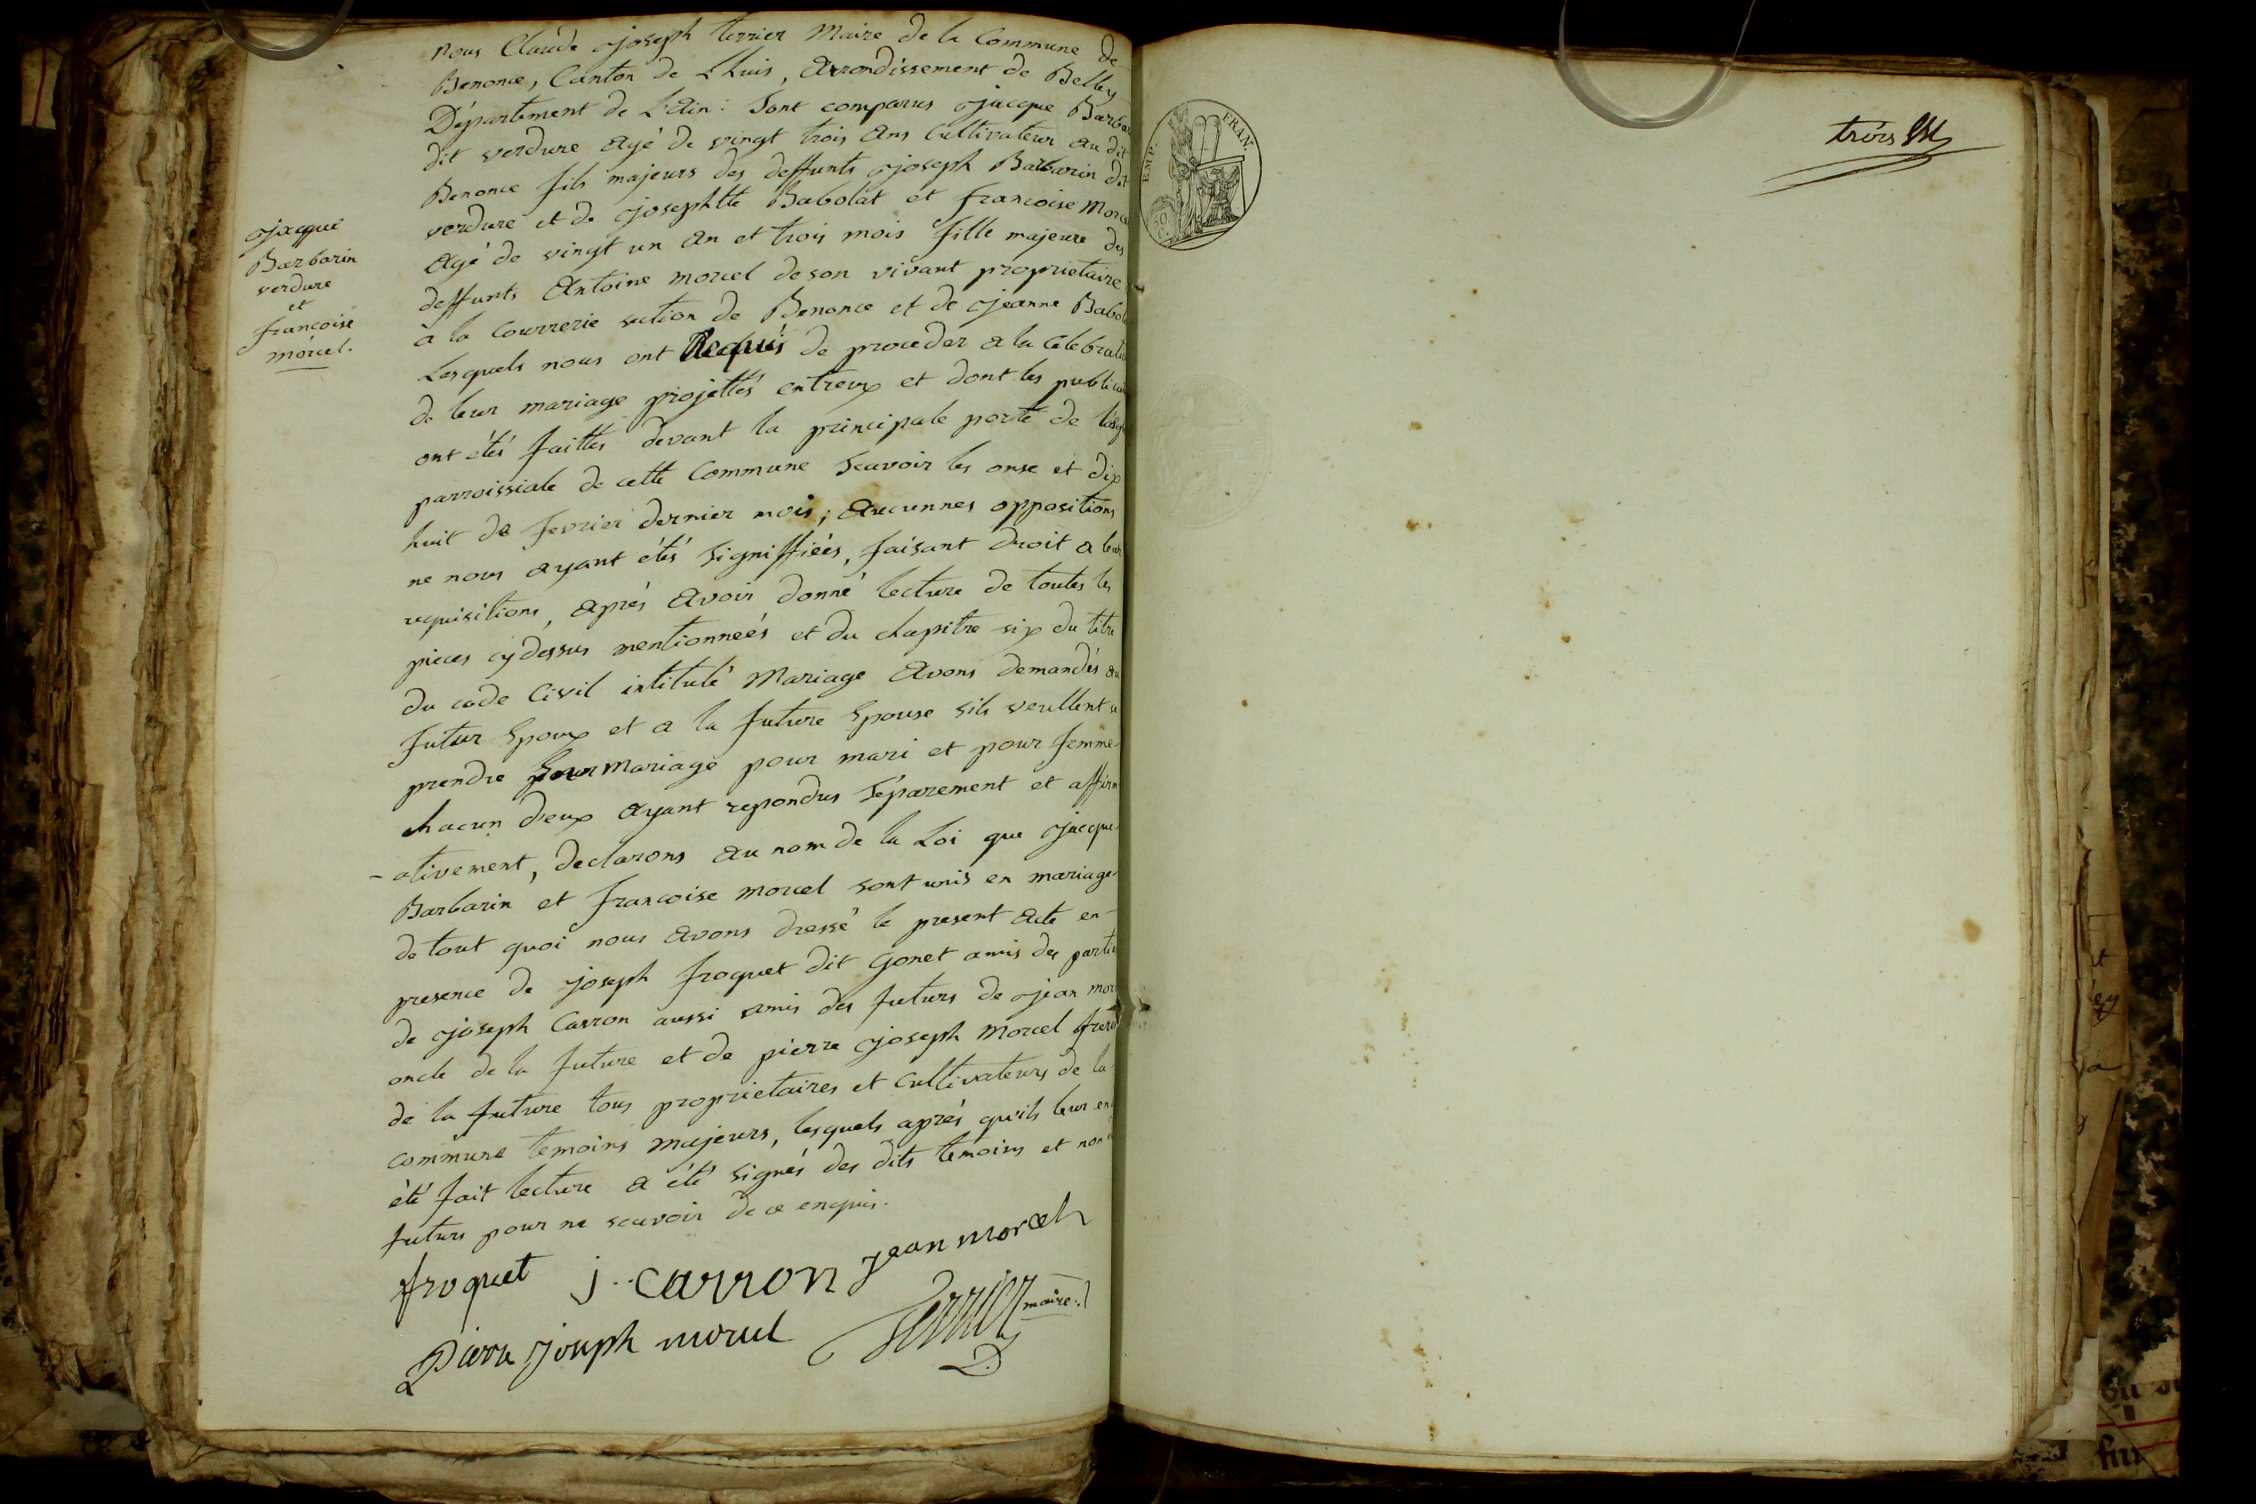 nous Claude joseph terrier Maire de la Commune de
Benonce, Canton de Lhuis, Arrondissement de Belley
Département de L'Ain : Sont comparus jacque Barba
dit verdure agé de vingt trois ans Cultivateur au dit
Benonce fils majeurs des deffunts joseph Barbarin dit
verdure et de josephtte Babolat et francoise Morce
Agé de vingt un an et trois mois fille majeure des
deffunts Antoine morcel de son vivant proprietaire
a la Courrerie section de Benonce et de jeanne Babol
Lesquels nous ont Requis de proceder a la Celebrati
de leur mariage projettés entreux et dont les publica
ont étés faittes devant la principale porte de legl
parroissiale de cette Commune Scavoir les onse et dix
huit de fevrier dernier mois ; Aucunnes oppositions
ne nous ayant étés Signiffiées, faisant droit a leur
requisitions, après Avoir donné lecture de toutes les
pieces cy dessus mentionneés et du chapitre six du titre
du code Civil intitulé Mariage Avons demandés au
futur Epoux et a la future Epouse sils veullent se
prendre pour mariage pour mari et pour femme
chacun d'eux Ayant repondus Séparement et affirm
-ativement, declarons au nom de la Loi que jacque
Barbarin et francoise morcel sont unis en mariage
de tout quoi nous avons dressé le present Acte en
presence de joseph froquet dit Gonet amis des partie
de joseph Carron aussi amis des futurs de jean mor
oncle de la future et de pierre joseph Morcel frere
de la future tous proprietaires et Cultivateurs de la
commune temoins majeurs, lesquels aprés quils leur en
été fait lecture a été signés des dits temoins et non
futurs pour ne scavoir de ce enquis.
froquet j. carron jean morcel
Pierre joseph morcel terrier maire
jacque
Barbarin
verdure
et
francoise
morcel.
EMP. FRAN.
trois